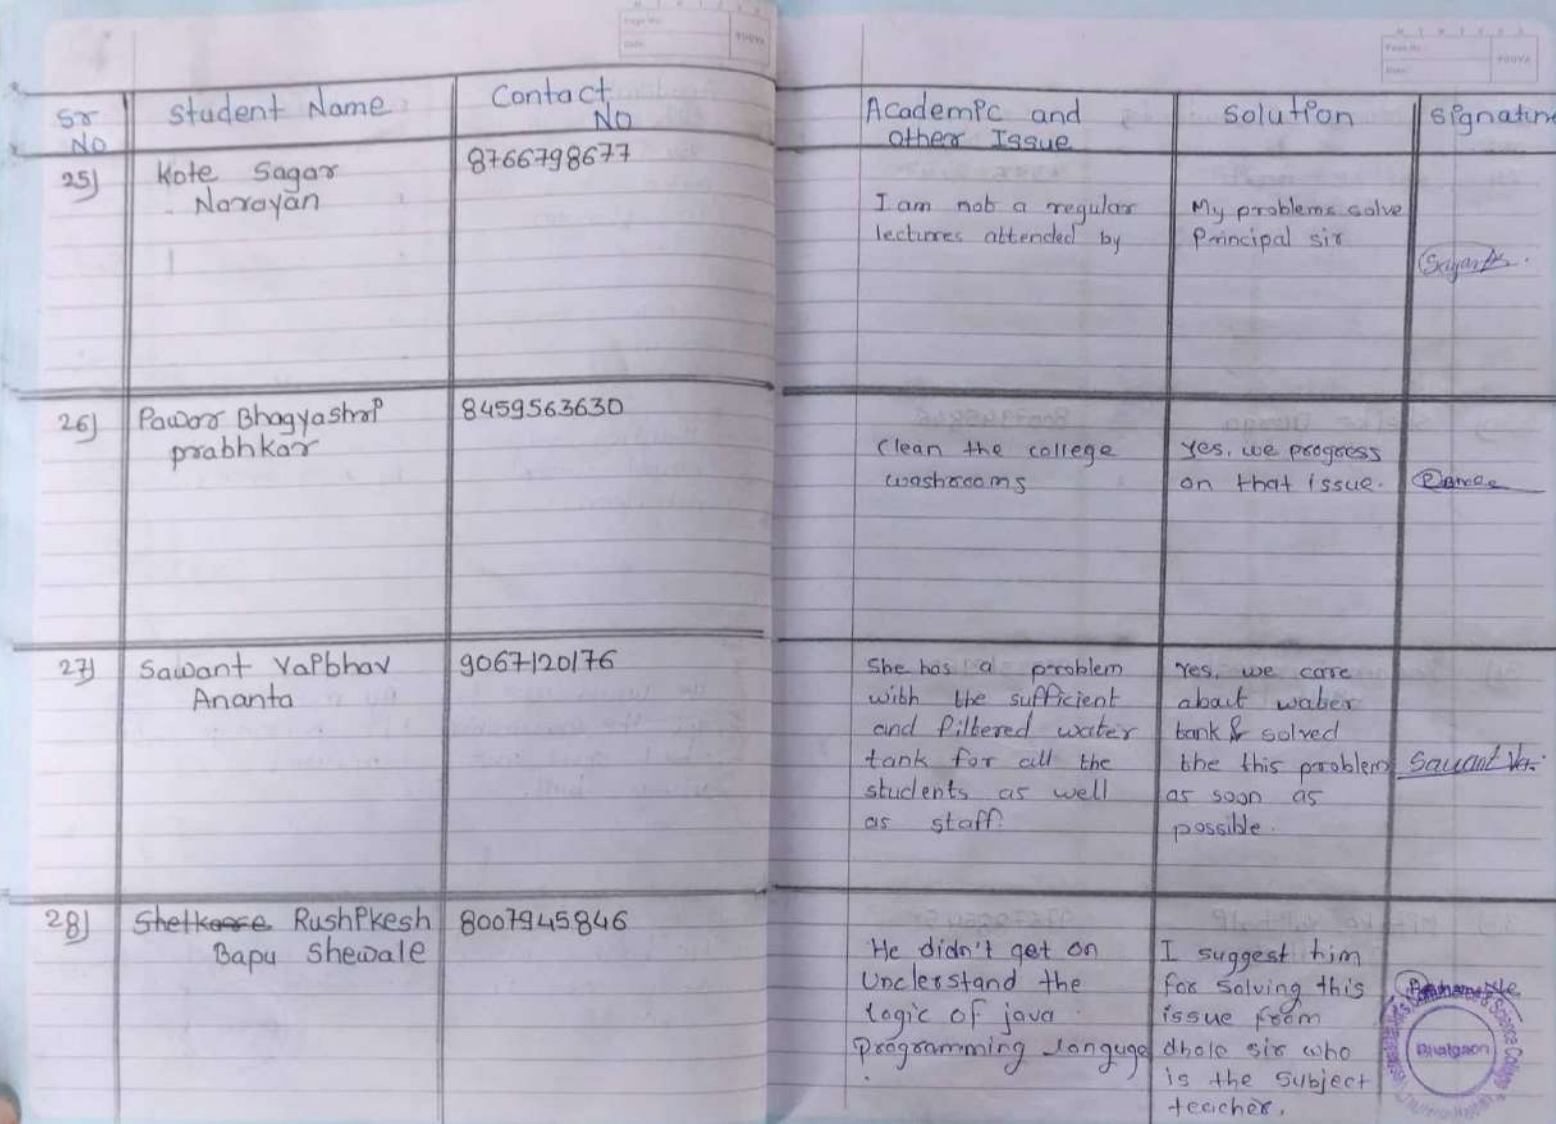 Sr
No
Student Name
Contact
No
Academic and
other Issue
Solution
Signature
25)
Kote Sagar
Narayan
8766798677
I am not a regular
lectures attended by
My problems solve
Principal sir
26)
Pawar Bhagyashri
prabhkar
8459563630
Clean the college
washrooms
Yes, we progress
on that issue.
27)
Sawant Vaibhav
Ananta
9067120176
She has a problem
with the sufficient
and filtered water
tank for all the
students as well
as staff.
Yes, we care
about water
tank & solved
the this problem
as soon as
possible.
Sawant Va.
28)
Rushikesh
Bapu Shewale
8007945846
He didn't get on
Understand the
logic of java
programming languge
I suggest him
for solving this
issue from
dhole sir who
is the subject
teacher.
Commerce & Science College
Bhalgaon